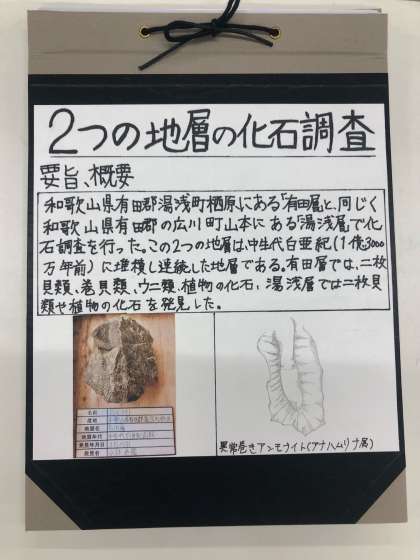 2つの地層の化石調査
要旨、概要
和歌山県有田郡湯浅町栖原にある「有田層」と、同じく
和歌山県有田郡の広川町山本にある「湯浅層」で化
石調査を行った。この2つの地層は、中生代白亜紀(1億3000
万年前)に堆積し連続した地層である。有田層では、二枚
貝類、巻貝類、ウニ類、植物の化石、湯浅層では二枚貝
類や植物の化石を発見した。
名前
産地
地層名
地質年代
発見年月日
発見者
異常巻きアンモナイト(アナハムリナ属)